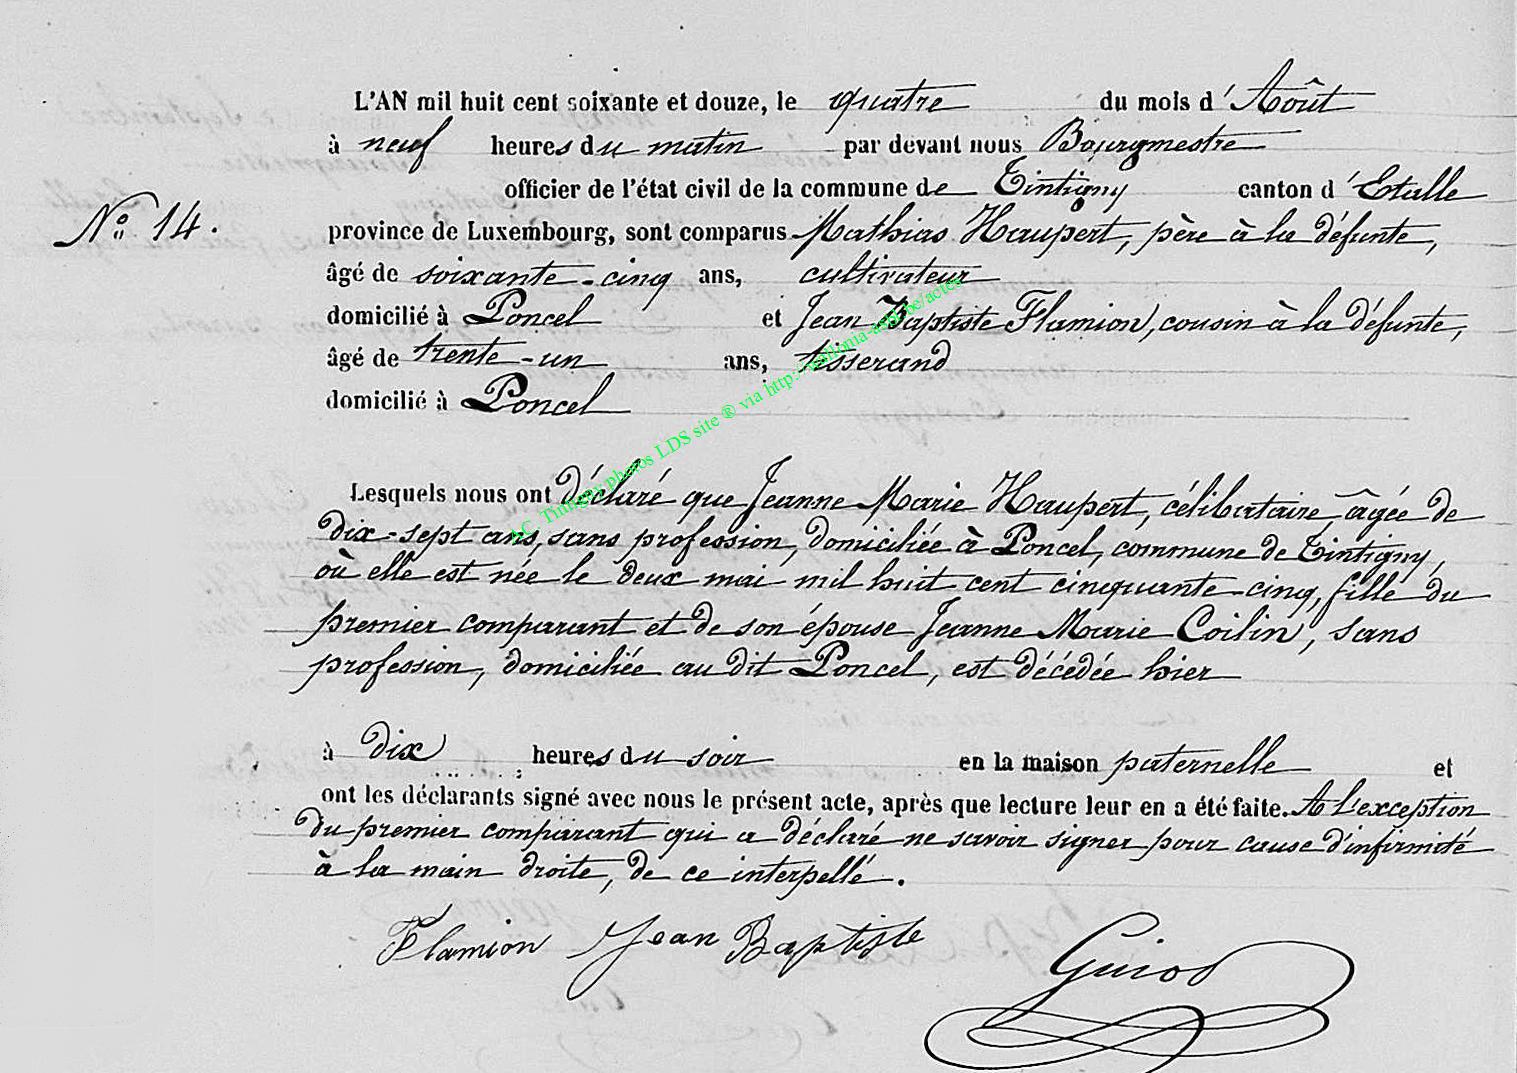 L'AN mil huit cent soixante et douze, le quatre du mois d'Août
à neuf heures du matin par devant nous Bourgmestre
officier de l'état civil de la commune de Tintigny canton d'Etalle
N° 14.
province de Luxembourg, sont comparus Mathias Haupert, père à la défunte,
âgé de soixante-cinq ans, cultivateur
domicilié à Poncel et Jean Baptiste Flamion, cousin à la défunte,
âgé de trente-un ans, tisserand
domicilié à Poncel
Lesquels nous ont déclaré que Jeanne Marie Haupert, célibataire, âgée de
dix-sept ans, sans profession, domiciliée à Poncel, commune de Tintigny,
où elle est née le deux mai mil huit cent cinquante-cinq, fille du
premier comparant et de son épouse Jeanne Marie Coilin, sans
profession, domiciliée au dit Poncel, est décédée hier
à dix heures du soir en la maison paternelle et
ont les déclarants signé avec nous le présent acte, après que lecture leur en a été faite. A l'exception
du premier comparant qui a déclaré ne savoir signer pour cause d'infirmité
à la main droite, de ce interpellé.
Flamion Jean Baptiste
Guiot
A.C. Tintigny photos LDS site ® via http://wallonia-asbl.be/actes